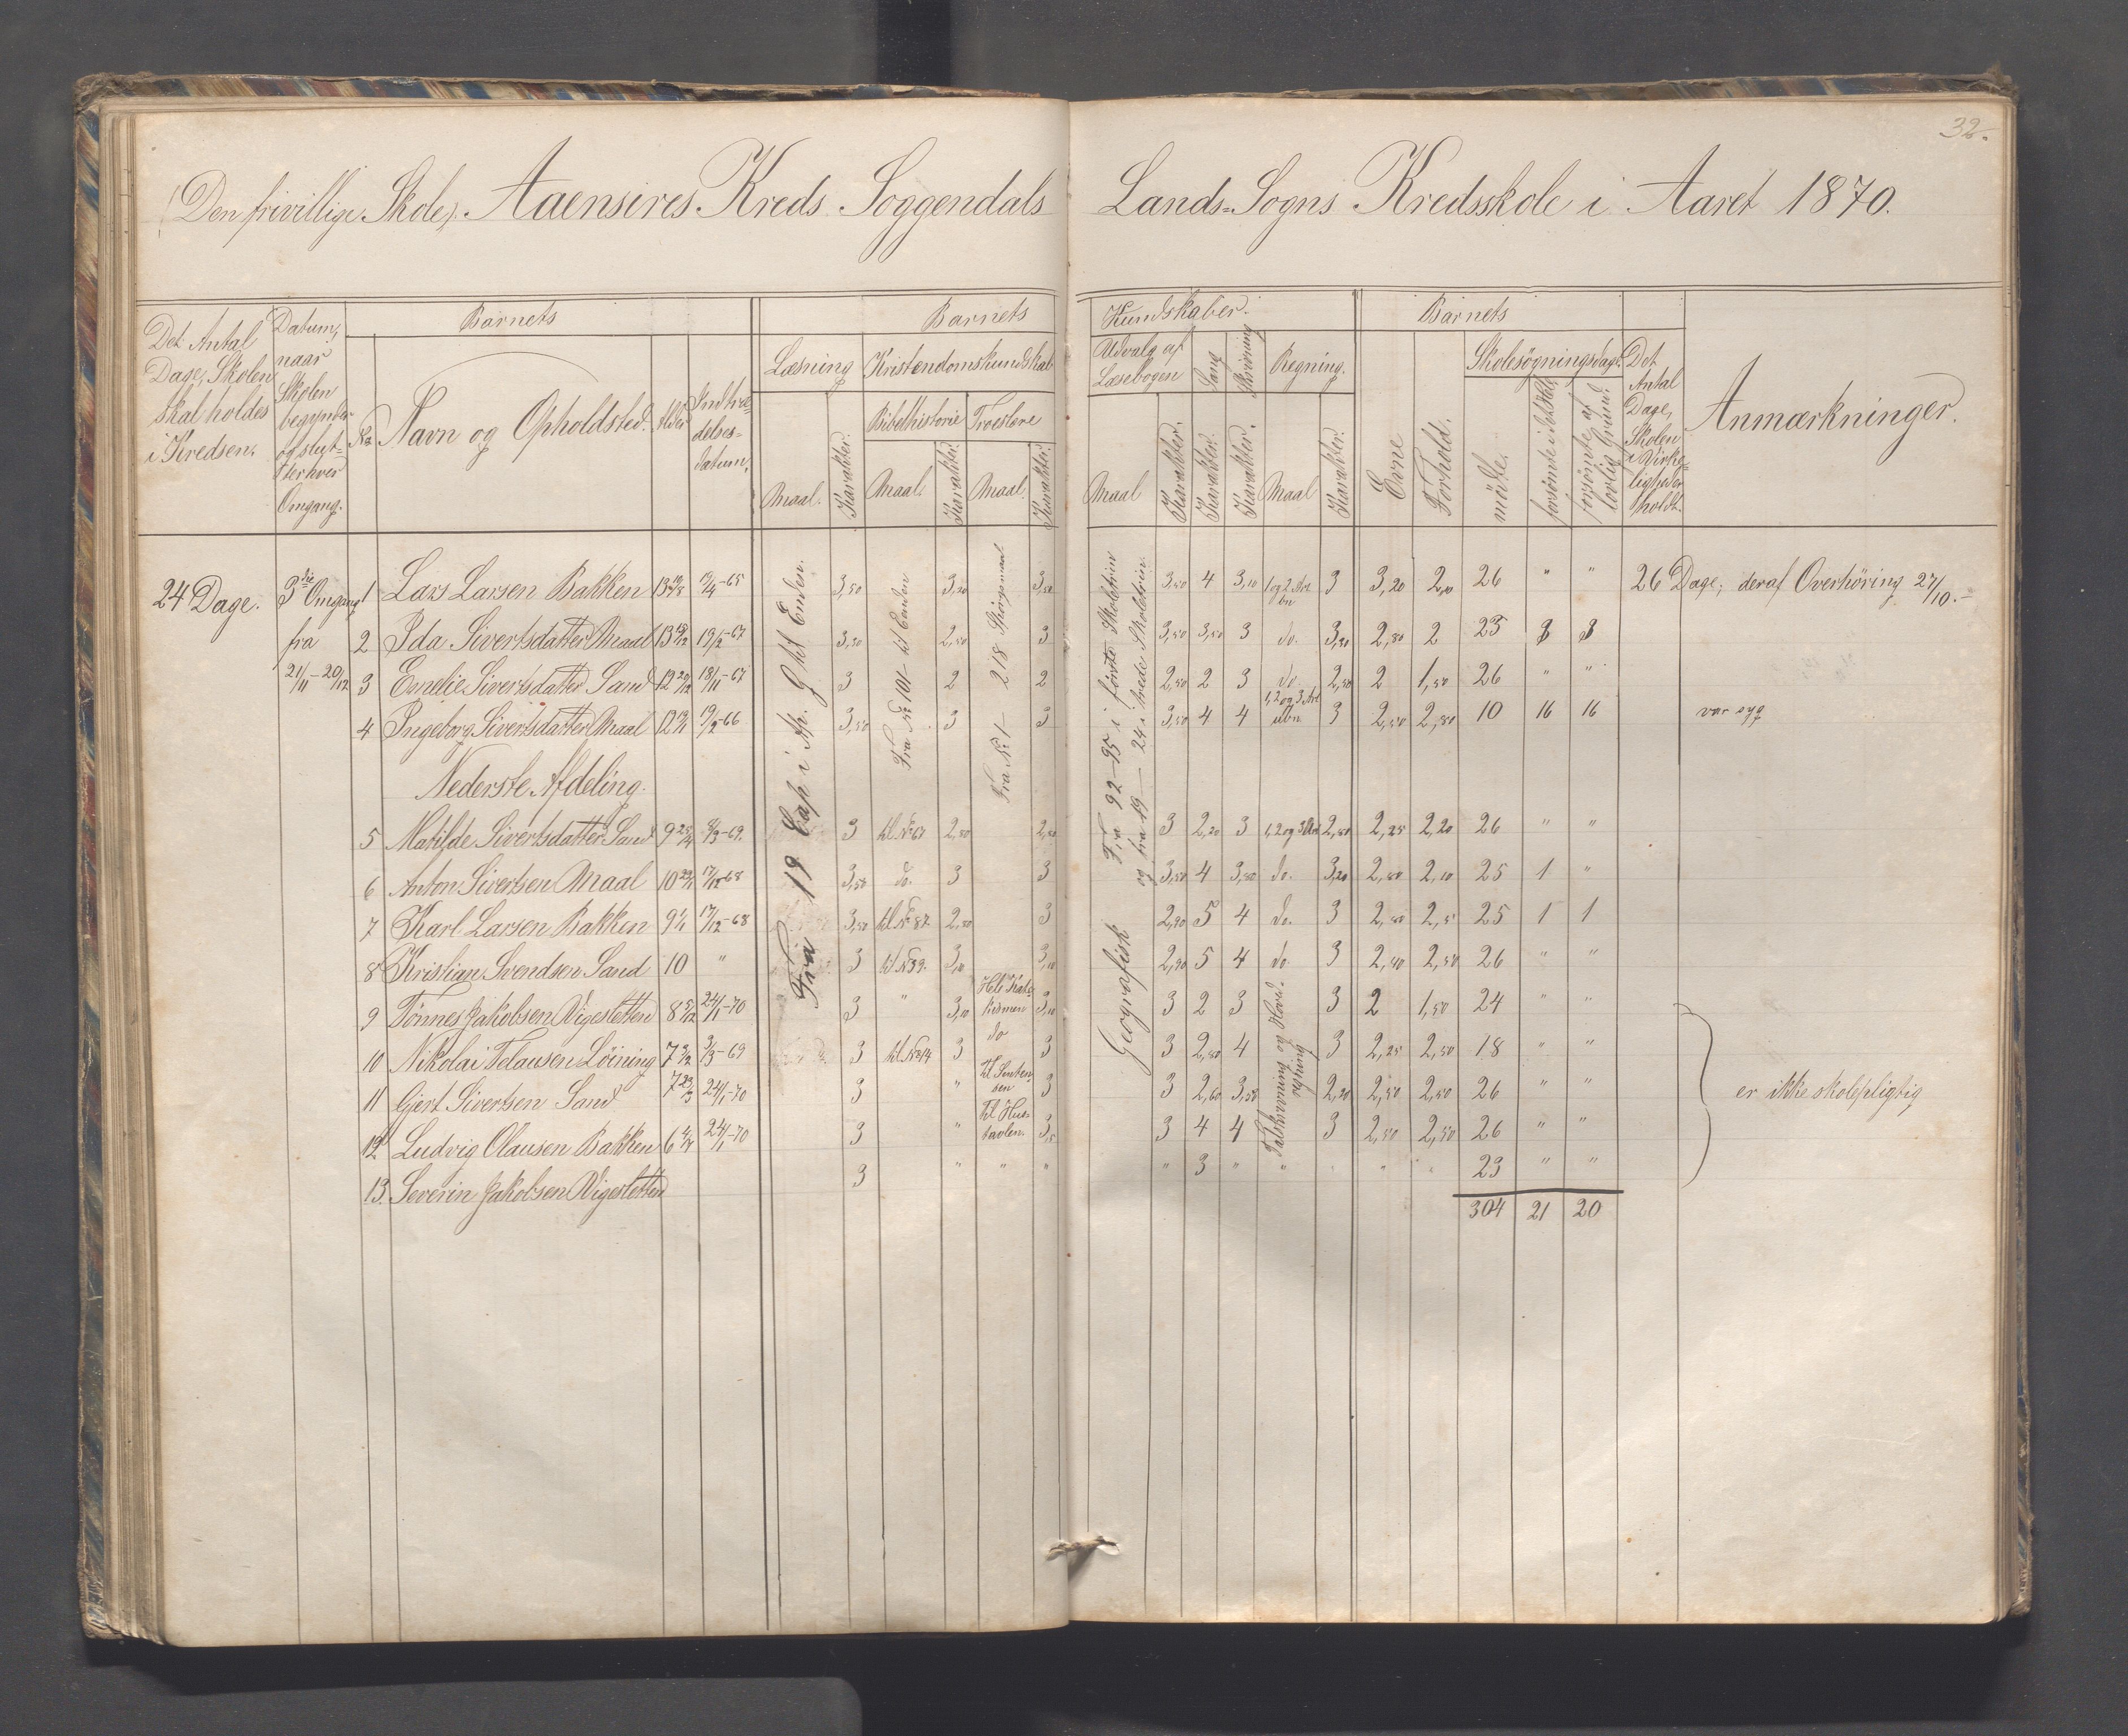 32.
(Den frivillige Skole). Aaensires Kreds. Soggendals Lands-Sogns Kredsskole i Aaret 1870.
Barnets Barnets Kundskaber. Barnets
Det Antal Dage, Skolen skal holdes i Kredsen.
Datum, naar Skolen begynder og slut- ter hver Omgang.
No
Navn og Opholdsted.
Alder
Indtræ- delses- datum.
Læsning Kristendomskundskab
Maal. Karakter.
Bibelhistorie Troeslære
Maal. Karakter. Maal. Karakter.
Udvalg af Læsebogen Sang Skrivning Regning.
Maal Karakter. Karakter. Karakter. Maal Karakter.
Evne
Forhold.
Skolesögningsdage
mödte.
forsömte af lovlig Grund.
Det Antal Dage, Skolen i Virke- ligheden holdt.
Anmærkninger.
24 Dage. 3die Omgang fra 21/11 - 20/12
Fra 19 Cap i Ap. Ght Enden.
Fra No 101 til Enden
Fra No 1 - 218 Spörgsmaal
Geografisk Fra 92-95 i förste Skoletrin
og fra 19 - 24 i tredie Skoletrin.
1 Lars Larsen Bakken 19/4-65 3,50 3,20 3,50 3,50 4 3,10 1 og 2 Art bn 3 3,20 2,10 26 " " 26 Dage, deraf Overhöring 27/10.-
2 Ida Sivertsdatter Maal 19/2-67 3,20 2,50 3 3,50 3,50 3 do. 3,20 2,80 2 23 3 3
3 Emelie Sivertsdatter Sand 18/11-67 3 2 2 2,50 2 3 do 2,50 2 1,50 26 " "
4 Ingeborg Sivertsdatter Maal 19/2-66 3,50 3 3 3,50 4 4 1,2 og 3 Art ubn 3 2,50 2,80 10 16 16 var syg
Nederste Afdeling.
5 Matilde Sivertsdatter Sand 3 til No 67 2,80 2,50 3 2,20 3 1,2 og 3 Art 2,80 2,25 2,20 26 " "
6 Anton Sivertsen Maal 17/12-68 3,50 do. 3 3 3,50 4 3,80 do. 3,20 2,80 2,10 25 1 "
7 Karl Larsen Bakken 9 1/1 17/12-68 3,50 til No 87. 2,80 3 2,90 5 4 do. 3 2,80 2,5 25 1 1
8 Kristian Svendsen Sand 10 " 3 til No 39. 3,10 3,10 2,90 5 4 do. 3 2,80 2,50 26 " "
9 Tönnes Jakobsen Vigesletten 24/1-70 3 " 3,10 Hele Kate- kismen 3,10 3 2 3 3 2 1,50 24 " "
10 Nikolai Telausen Löining 3/3-69 3 til No 14 3 do 3 3 2,80 4 3 2,25 2,50 18 " "
11 Gjert Sivertsen Sand 24/1-70 3 " til Senten- sen 3 3 2,60 3,50 2,20 2,50 2,50 26 " "
12 Ludvig Olausen Bakken 24/1-70 3 " til Hus- tavlen. 3,5 3 4 4 3 2,50 2,50 26 " "
13. Severin Jakobsen Vigesletten 3 " " " " 3 " " " " 23 " "
Talskrivning og Hoved- regning
er ikke skolepligtig
304 21 20